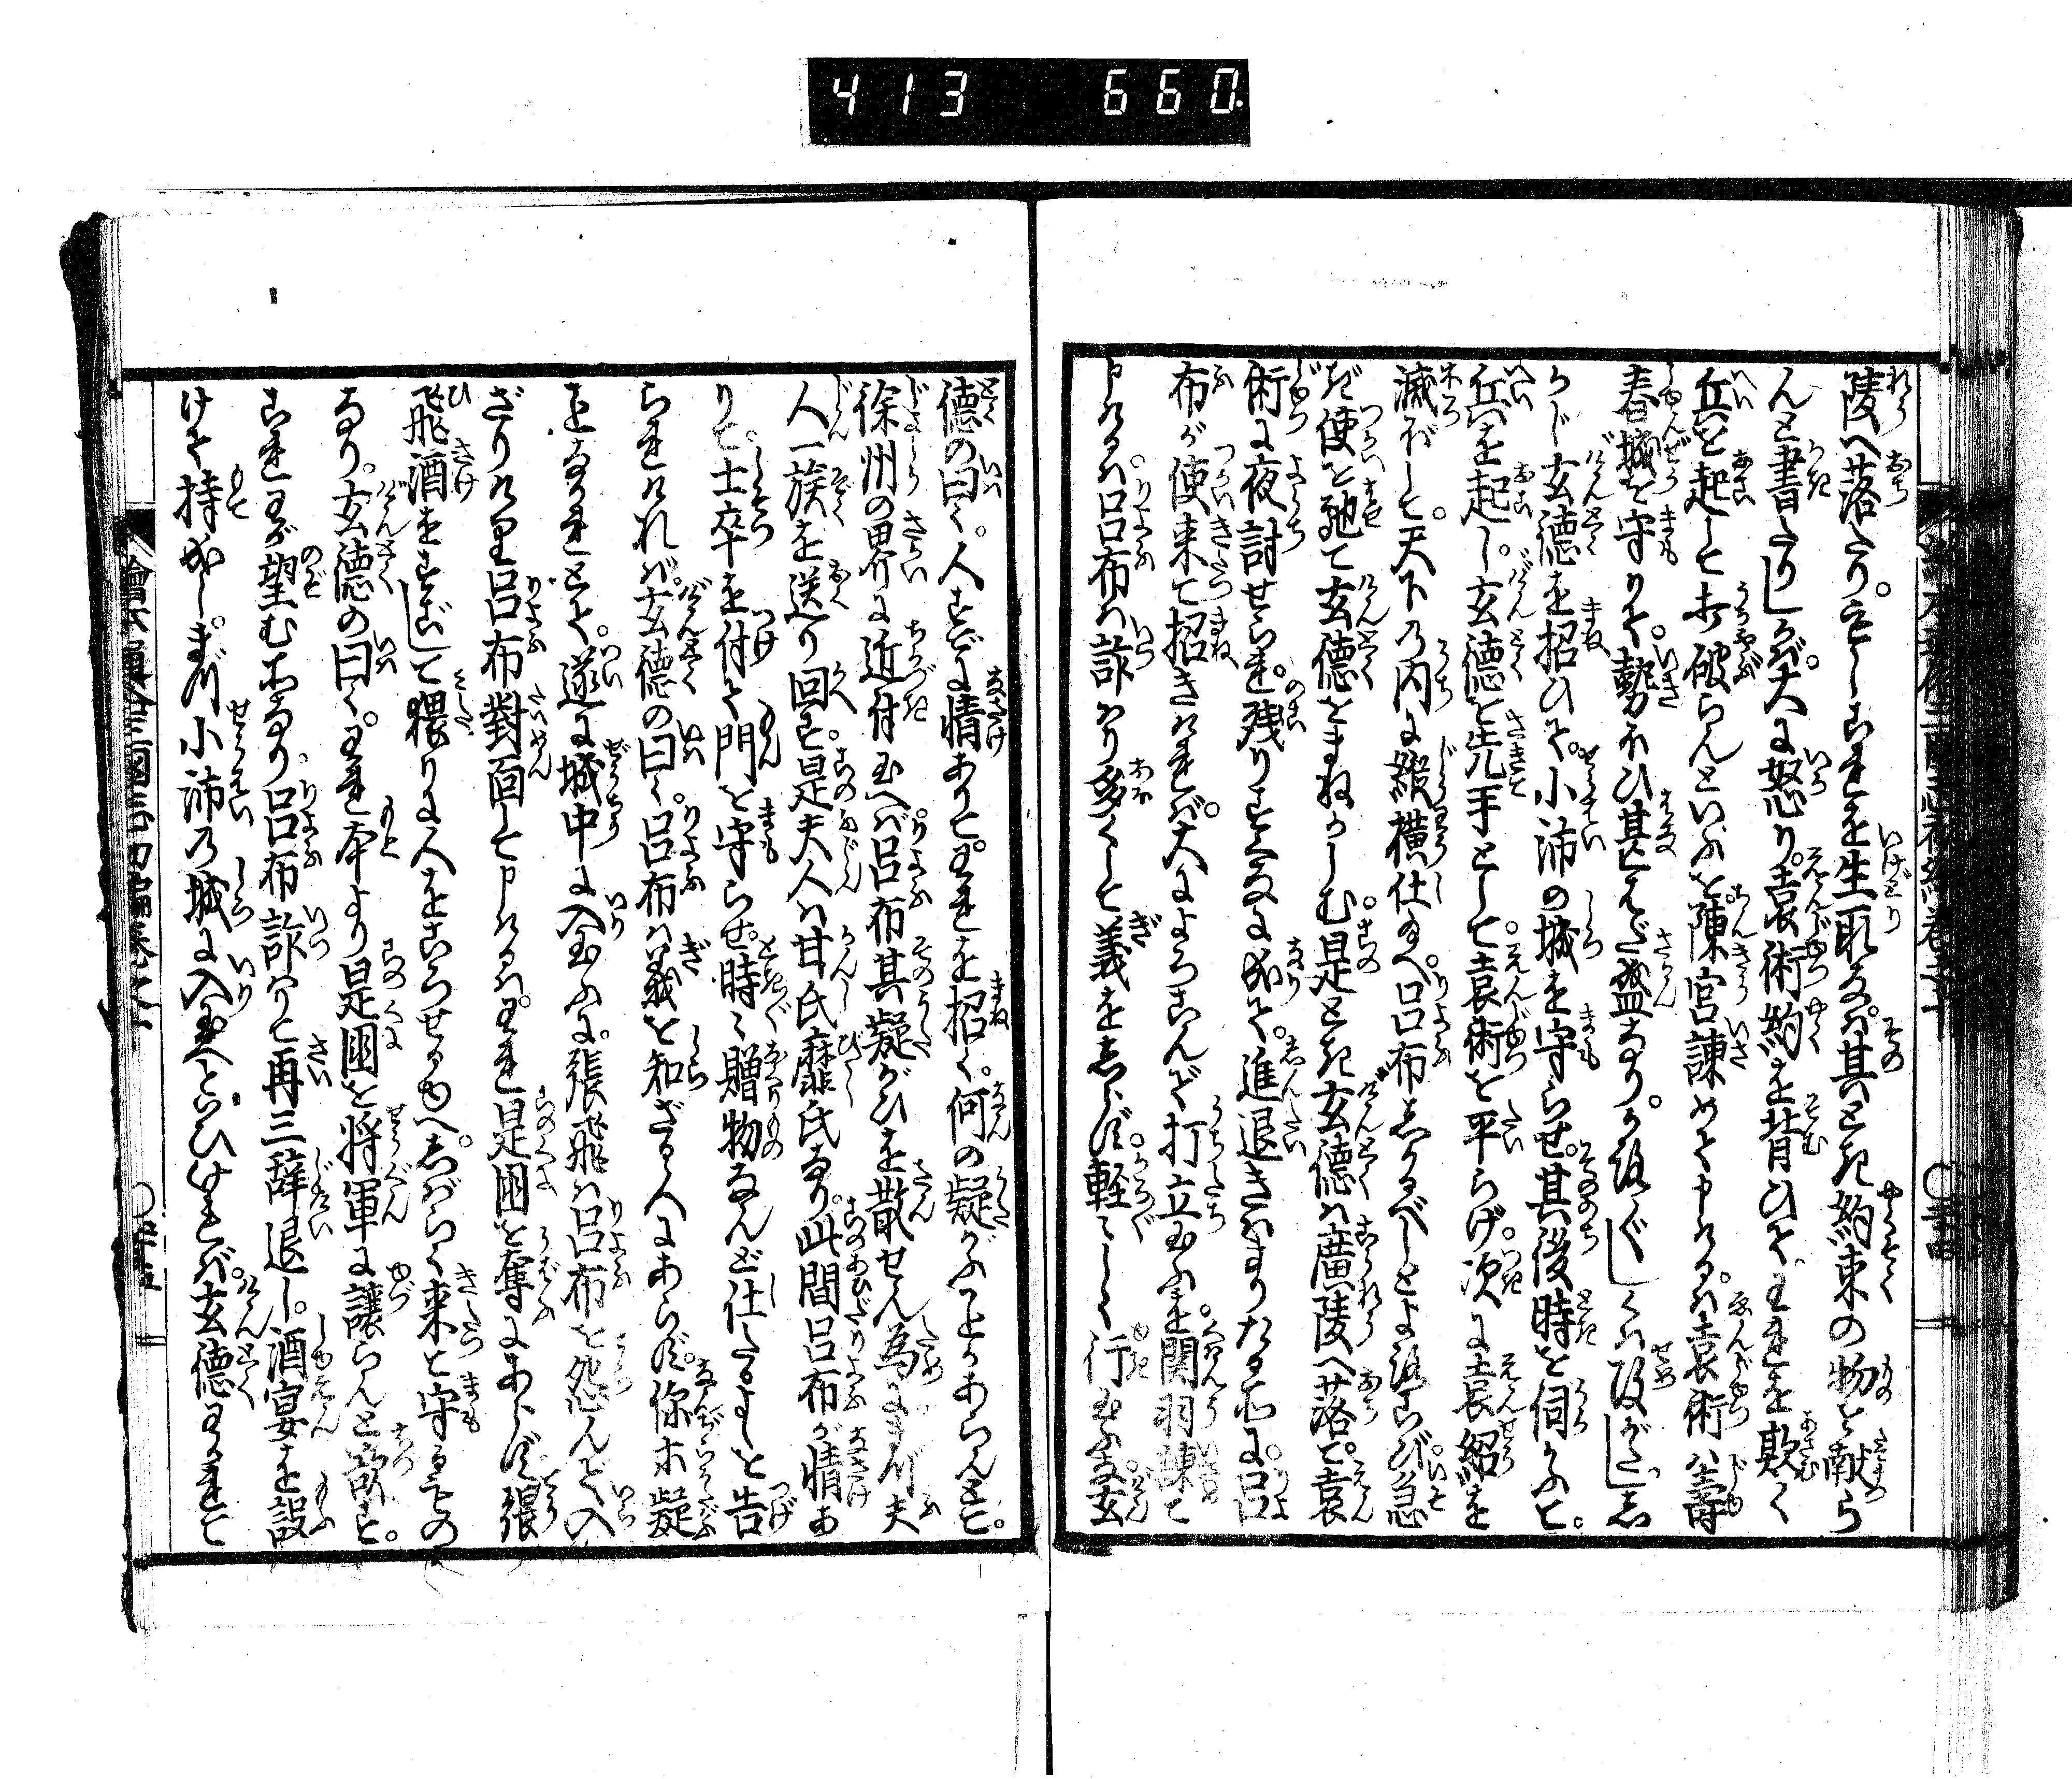 413 660
陵へ落たり。もしこれを生取なば其とき約束の物を献ら
んと書たりしかば。大に怒り。袁術約を背ひて。われを欺く
兵を起して打破らんといふを。陳宮諫めて申けるは。袁術は壽
春城を守りて。勢ひ甚だ盛なり。
かじ玄徳を招ひて。小沛の城を守らせ。其後時を伺ふて。
兵を起し。玄徳を先手として。袁術を平らげ。次に袁紹を
滅ぼして。天下の内に縦横仕玉へ。呂布しかるべしとよろこび。急
ぎ使を馳て玄徳をまねかしむ。是とき玄徳は廣陵へ落て。袁
術に夜討せられ。残りすくなに成て。進退きはまりたる所に。呂
布が使来て招きければ。大によろこんで打立玉ふを。関羽諫て
申けるは。呂布は詐り多くして義をしらず。軽々しく行玉ふな。玄
徳の曰く。人すでに情ありて。われを招く。何の疑がふことかあらんとて。
徐州の界に近付玉へば。呂布其疑がひを散せん為に。まづ夫
人一族を送り回す。是夫人は甘氏糜氏なり。此間呂布が情あ
りて。士卒を付て門を守らせ。時々贈物なんど仕たるよしを告
られければ。玄徳の曰く。呂布は義を知ざる人にあらず。你等疑
となかれとて。遂に城中に入玉ふに。張飛は呂布を怨んで入
ざりけり。呂布對面して申けるは。われ是國を奪にあらず。張
飛酒をすごして猥りに人をころせるゆへ。しばらく来て守るもの
なり。玄徳の曰く。われ本より是國を将軍に譲らんと欲す。
これわが望む所なり。呂布詐りて再三辞退し。酒宴を設
けて持成し。まづ小沛の城に入玉へといひければ。玄徳わかれて